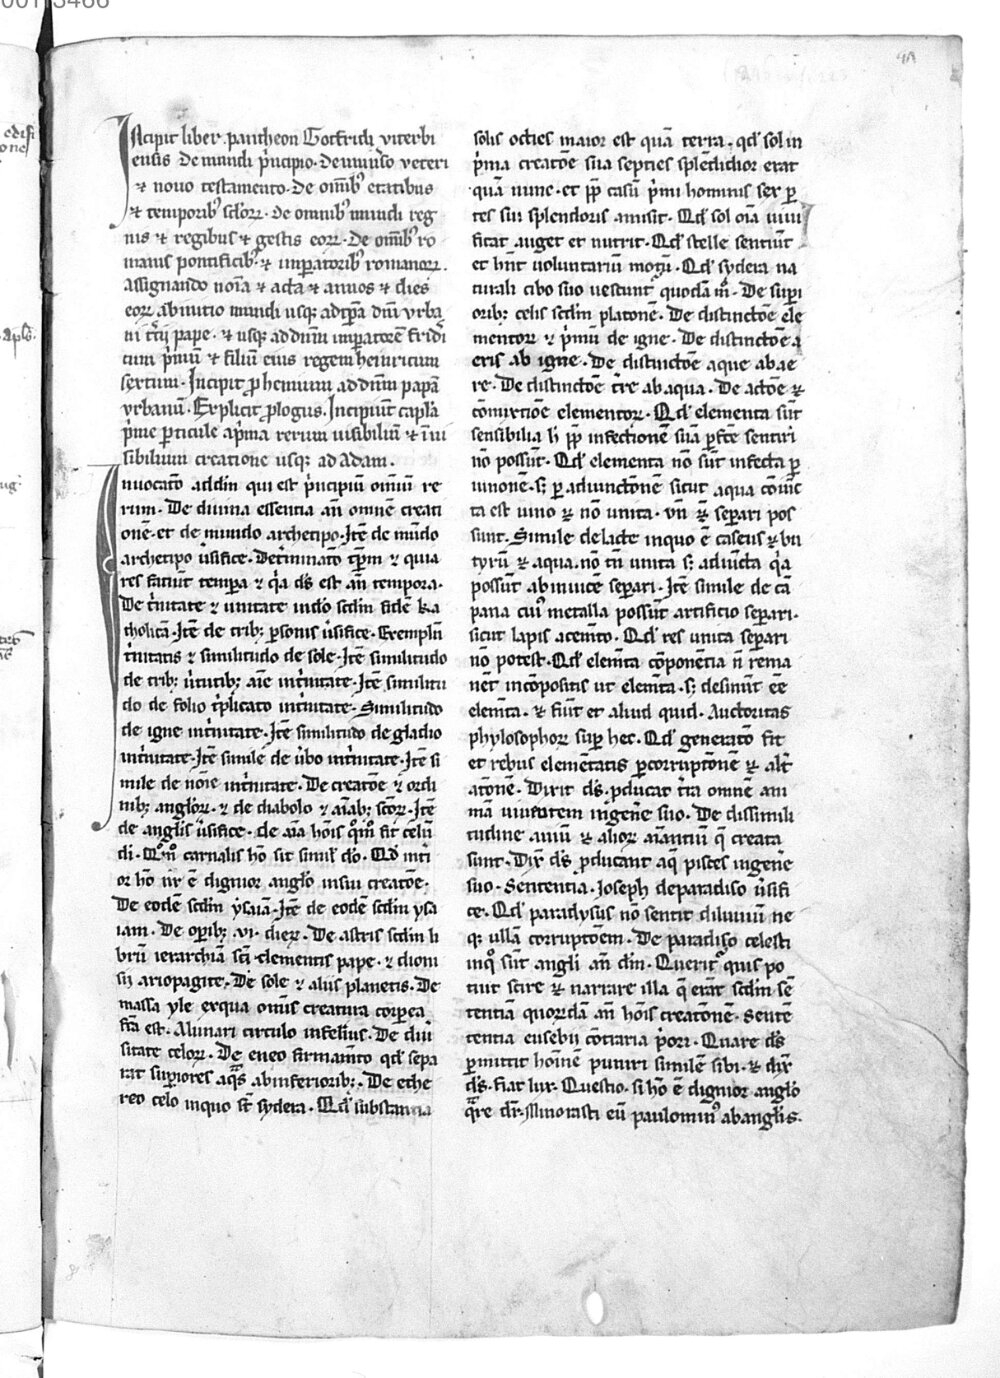 00113466
Incipit liber pantheon Gotfridi viterbi
ensis de mundi p̃ncipio. de uniu̾so veteri
⁊ nouo testamento. de om̃ib⁹ etatibus
⁊ temporib⁹ sc̃lorꝝ. de omnibꝰ mundi reg
nis ⁊ regibus ⁊ gestis eorꝝ. de om̃ibꝰ ro
manis pontificibꝰ. ⁊ imꝑatoribꝰ romanorꝝ.
assignando noı̃a ⁊ acta ⁊ annos ⁊ dies
eorꝝ ab initio mundi usqꝫ ad tꝑa dñi vrba
ni tc̾ii pape. ⁊ usqꝫ ad dñm imꝑatorē fridi
cum p̃mū ⁊ filiū eius regem heinricum
sextum. Incipit ꝓhemium ad dñm papā
vrbanū. Explicit ꝓlogus. Incipiūt capl̃a
p̃me ꝑticule a p̃ma rerum uisibiliū ⁊ īui
sibilium creatione usqꝫ ad Adam.
Inuocatõ ad dm̃ qui est p̃ncipiū om̃iū re
rum. De diuina essentia añ omnē creati
onē. et de mundo archetipo. Itē de mūdo
archetipo ũsifice. Det̃minatõ tꝑm ⁊ quia
res faciūt tempora ⁊ q̃a ds̃ est añ tempora.
De t̃nitate ⁊ unitate in dõ sc̃dm fidē ka
tholicā. Itē de tribꝫ ꝑsonis ũsifice. Exemplū
t̃nitatis ⁊ similitudo de sole. Itē similitudo
de tribꝫ ũtutibꝫ aīe in t̃nitate. Itē similitu
do de folio t̃plicato in t̃nitate. Similitudo
de igne in t̃nitate. Itē similitudo de gladio
in t̃nitate. Itē simile de ũbo in t̃nitate. Itē si
mile de noı̃e in t̃nitate. De creatõe ⁊ ordi
nibꝫ angl̃orꝝ. ⁊ de diabolo ⁊ aı̃abꝫ sc̃orꝝ. Itē
de angl̃is ũsifice. de aı̃a hoı̃s qm̃o fit celū
di. Qm̃o carnalis hõ sit simil̾ dõ. Qd̾ int̾i
or hõ ut̾ ē dignior angl̃o in sui creatõe.
De eodē sc̃dm ysaiā. Itē de eodē sc̃dm ysa
iam. De oꝑibꝫ .vi. dierꝝ. De astris sc̃dm li
brū ierarchiā sc̃i clementis pape. ⁊ dioni
sii ariopagite. De sole ⁊ aliis planetis. De
massa yle ex qua omnis creatura corporea
fc̃a est. A lunari circulo inferius. De diu̾
sitate celorꝝ. De eneo firmamto qd̾ sepa
rat suꝑiores aq̃s ab inferioribꝫ. De ethe
reo celo in quo st̃ sydera. Qd̾ substantia
solis octies maior est quā terra. qd̾ sol in
p̃ma creatõe sua septies splēdidior erat
quā nunc. et ꝓp̃ casū p̃mi hominis sex ꝑ
tes sui splendoris amisit. Qd̾ sol oı̃a uiui
ficat auget et nutrit. Qd̾ stelle sentiūt
et hñt uoluntariū motū. Qd̾ sydera na
turali cibo suo uescunt̾ quodā m̊. De suꝑi
oribꝫ celis sc̃dm platonē. De distinctõe ele
mentorꝝ ⁊ p̃mū de igne. De distinctõe a
eris ab igne. De distinctõe aque ab ae
re. De distinctõe tr̃e ab aqua. De actõe ⁊
cōmixtiōe elementorꝝ. Qd̾ elementa sūt
sensibilia lꝫ ꝓp̃ infectionē suā ꝑfc̃e sentiri
nō possūt. Qd̾ elementa nō sūt infecta ꝑ
unionē. sꝫ ꝑ adiunctōnē sicut aqua cōiūc
ta est uino ⁊ nō unita. vñ ⁊ seꝑari pos
sunt. Simile de lacte in quo ē caseus ⁊ bu
tyrū ⁊ aqua. nō tñ unita sꝫ adiūcta q̃a
possūt ab inuicē seꝑari. Itē simile de cā
pana cui⁹ metalla possūt artificio seꝑari.
sicut lapis a cemēto. Qd̾ res unita seꝑari
nō potest. Qd̾ elem̃ta cōponētia ñ rema
nēt in cōpositis ut elem̃ta. sꝫ desinūt eē
elem̃ta. ⁊ fiūt et aliud quid. Auctoritas
phylosophorꝝ suꝑ hec. Qd̾ generatõ fit
et rebus elemētatis ꝑ corruptōnē ⁊ alt̾
atōnē. Dixit ds̃. ꝓducat tr̃ra omnē ani
mā uiuētem in genꝰe suo. De dissimili
tudine auiū ⁊ aliorꝝ aı̃antiū q̃ creata
sunt. Dix̃ ds̃ ꝓducant aq̃ pisces in genꝰe
suo. Sententia. Joseph de paradiso ũsifi
ce. Qd̾ paradysus nō sentit diluuiū ne
qꝫ ullā corruptōem. De paradiso celesti
in q̊ sūt angl̃i añ dm̃. Querit̾ quis po
tuit scire ⁊ narrare illa q̃ erāt sc̃dm sē
tentiā quorūdā añ hoı̃s creatōnē. Sentē
tentia eusebii cōtraria p̾ori. Quare ds̃
ꝑmittit hominē puniri similē sibi. ⁊ dix̃
ds̃. fiat lux. Questio. si hõ ē dignior angl̃o
q̃re dr̃. Minorasti eū paulomin⁹ ab angl̃is.